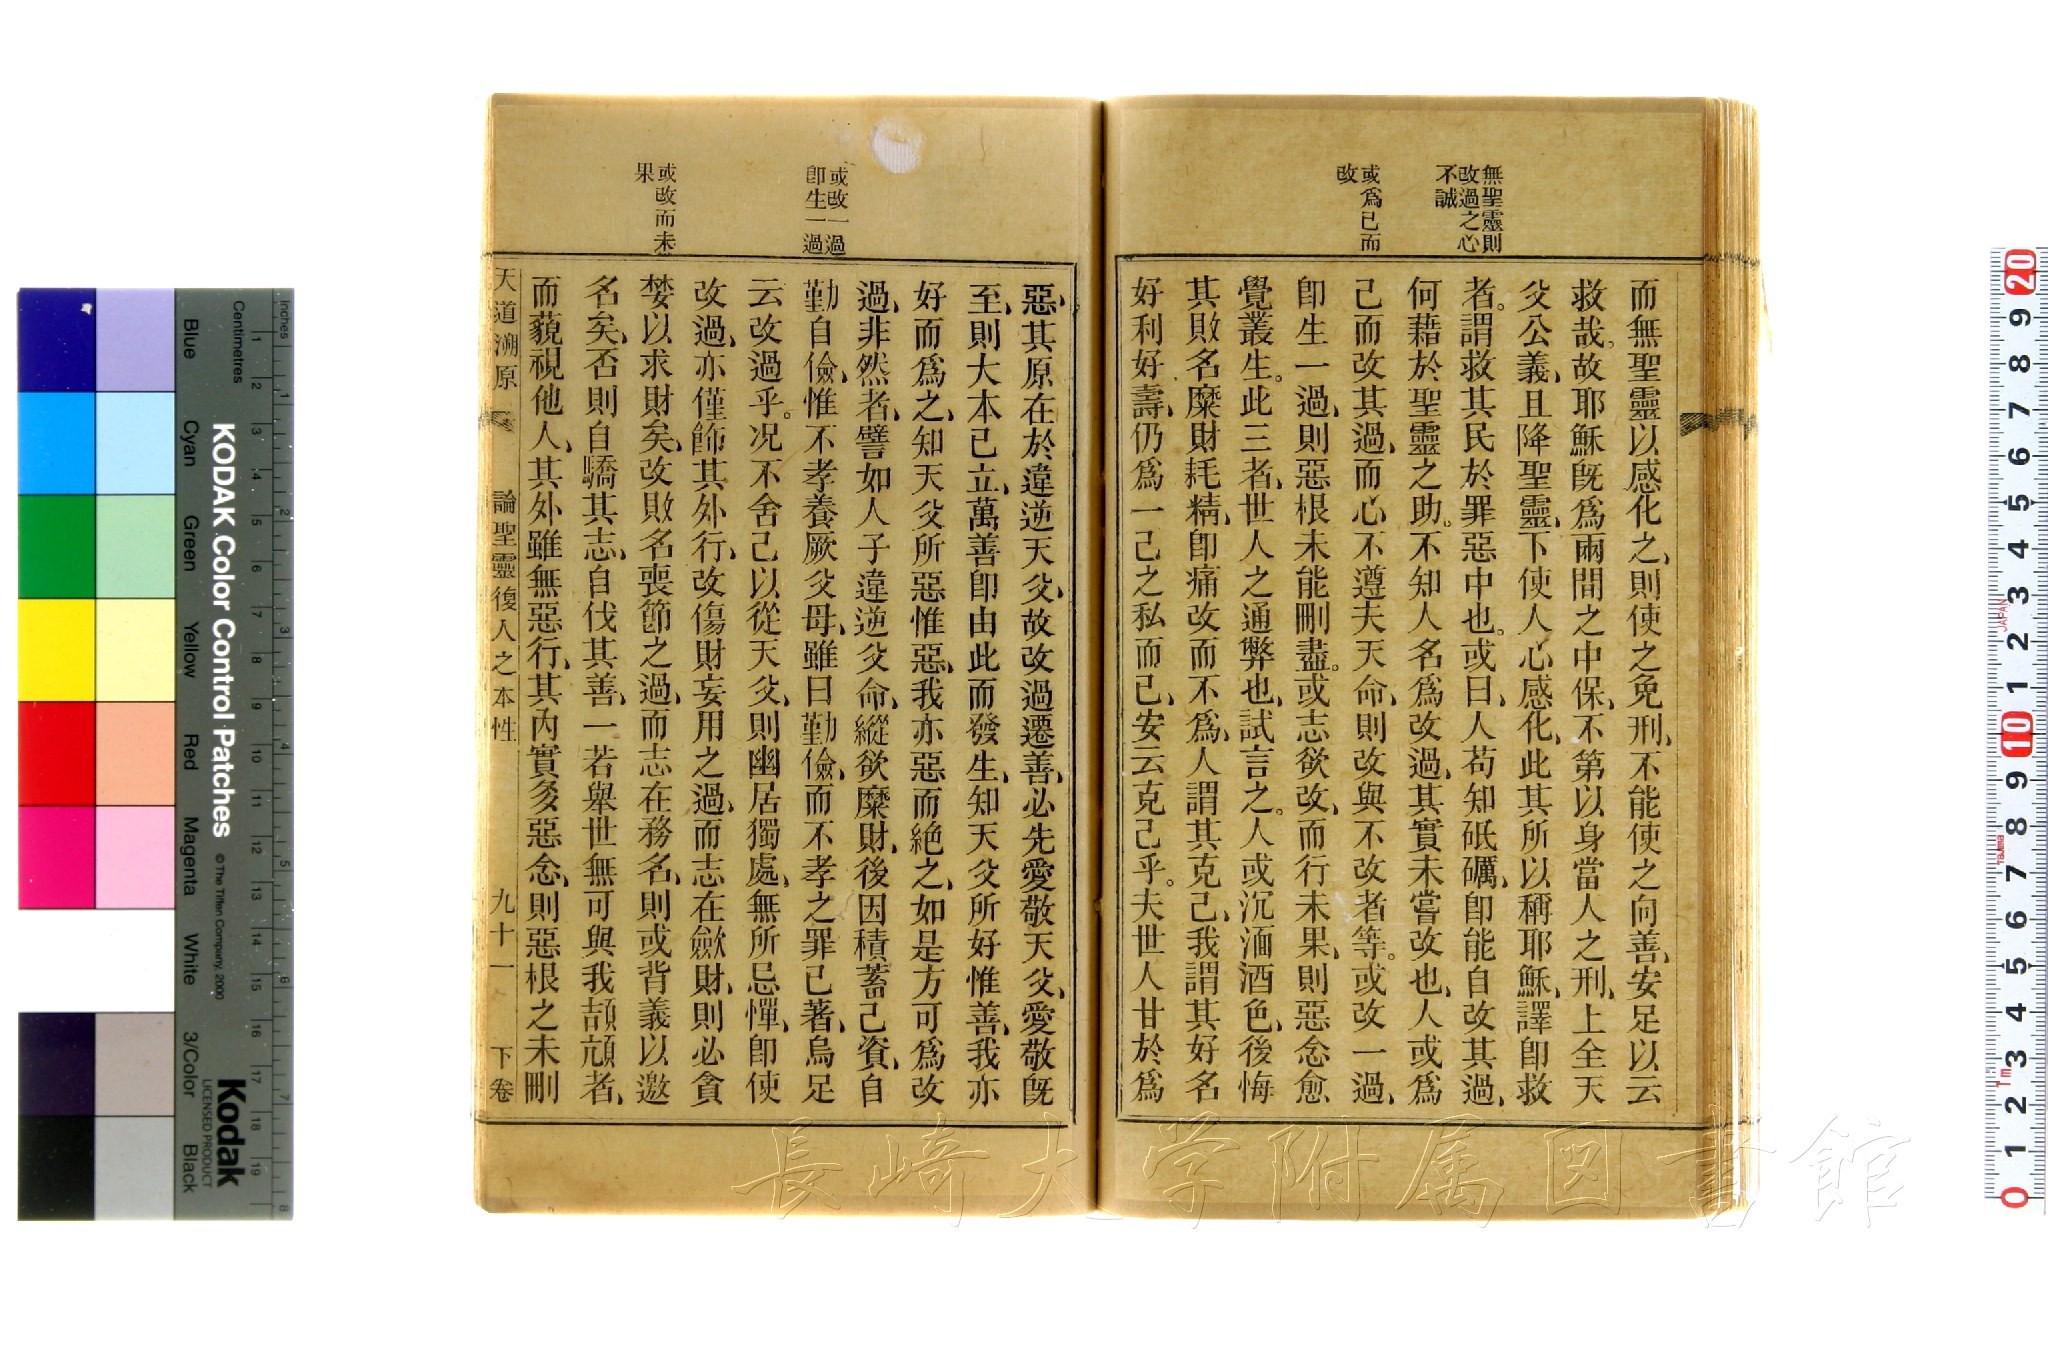 無聖靈則
改過之心
不誠
或爲己而
改
而無聖靈以感化之、則使之免刑、不能使之向善、安足以云
救哉。故耶穌旣爲兩間之中保、不第以身當人之刑、上全天
父公義、且降聖靈、下使人心感化、此其所以稱耶穌、譯卽救
者。謂救其民於罪惡中也。或曰、人苟知砥礪、卽能自改其過、
何藉於聖靈之助。不知人名爲改過、其實未嘗改也、人或爲
己而改其過、而心不遵夫天命、則改與不改者等。或改一過、
卽生一過、則惡根未能刪盡。或志欲改、而行未果、則惡念愈
覺叢生。此三者、世人之通弊也、試言之。人或沉湎酒色、後悔
其敗名糜財耗精、卽痛改而不爲、人謂其克己、我謂其好名
好利好壽、仍爲一己之私而已、安云克己乎。夫世人甘於爲
或改一過
卽生一過
或改而未
果
惡、其原在於違逆天父、故改過遷善、必先愛敬天父、愛敬旣
至、則大本已立、萬善卽由此而發生、知天父所好惟善、我亦
好而爲之、知天父所惡惟惡、我亦惡而絶之、如是方可爲改
過、非然者、譬如人子違逆父命、縱欲糜財、後因積蓄己資、自
勤自儉、惟不孝養厥父母、雖曰勤儉、而不孝之罪已著、烏足
云改過乎。况不舍己以從天父、則幽居獨處、無所忌憚、卽使
改過、亦僅飾其外行、改傷財妄用之過、而志在歛財、則必貪
婪以求財矣、改敗名喪節之過、而志在務名、則或背義以邀
名矣、否則自驕其志、自伐其善、一若舉世無可與我頡頏者、
而藐視他人、其外雖無惡行、其內實多惡念、則惡根之未刪
天道溯原 論聖靈復人之本性 九十一 下卷
長崎大学附属図書館
Inches
Centimetres
KODAK Color Control Patches
© The Tiffen Company, 2000
Blue
Cyan
Green
Yellow
Red
Magenta
White
3/Color
Black
Kodak
LICENSED PRODUCT
1 2 3 4 5 6 7 8
1 2 3 4 5 6 7 8 9 10 11 12 13 14 15 16 17 18 19
20 9 8 7 6 5 4 3 2 1 10 9 8 7 6 5 4 3 2 1 0
JAPAN
Tajima
Tm